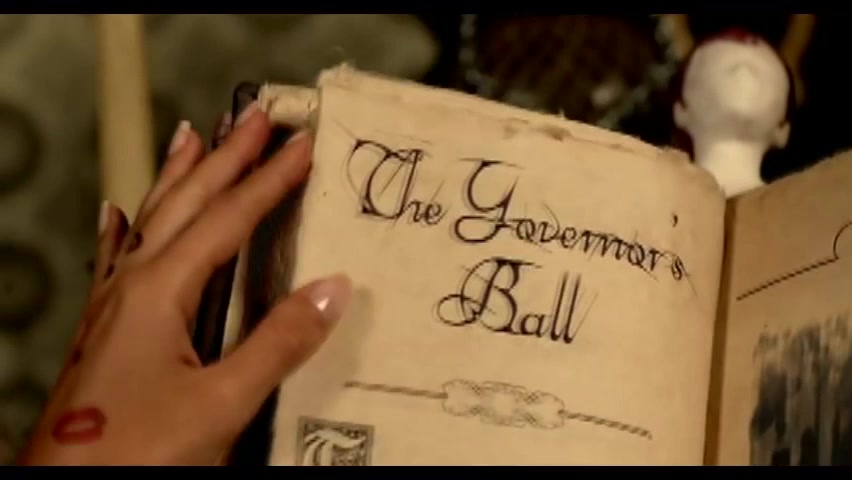 The Governor's
Ball
T